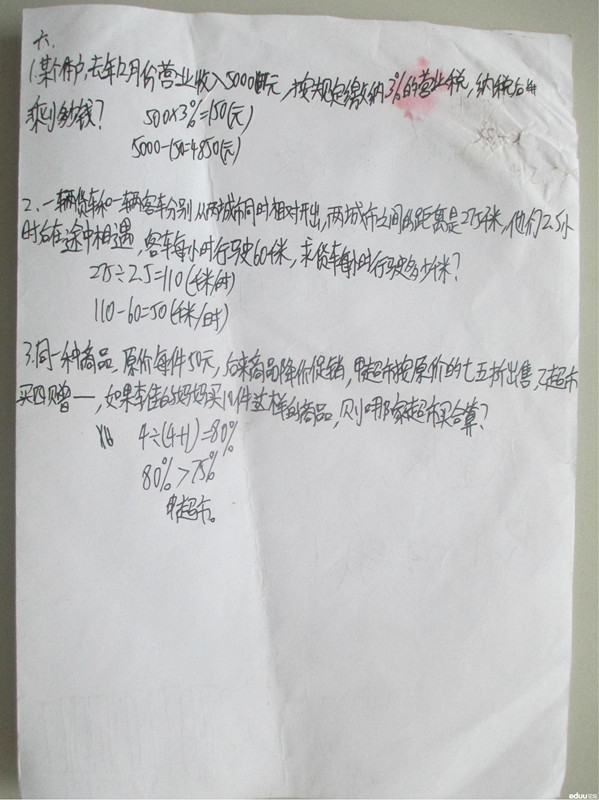 六、
1.某个体户,去年12月份营业收入5000元,按规定缴纳3%的营业税,纳税后
剩多少钱?
500×3%=150(元)
5000-150=4850(元)
2、一辆货车和一辆客车分别从两城市同时相对开出,两城市之间的距离是275千米,他们2.5小
时后在途中相遇,客车每小时行驶60千米,求货车每小时行驶多少千米?
275÷2.5=110(千米/时)
110-60=50(千米/时)
3.同一种商品,原价每件50元,后来商品降价促销,甲超市按原价的七五折出售,乙超市
买四赠一,如果李佳的妈妈买 件这样的商品,则哪家超市买合算?
4÷(4+1)=80%
80%>75%
甲超市。
eduu论坛